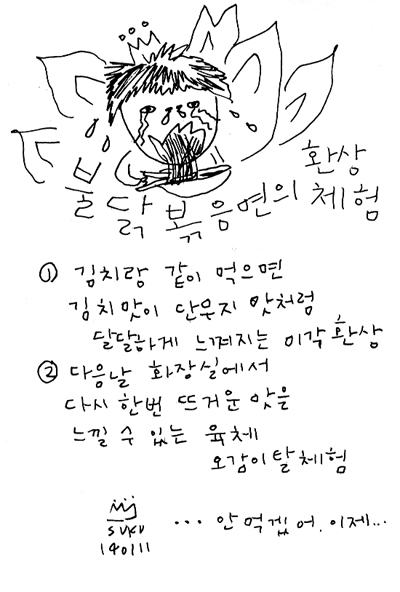 불닭볶음면의 환상 체험
① 김치랑 같이 먹으면
김치맛이 단무지 맛처럼
달달하게 느껴지는 미각 환상
② 다음날 화장실에서
다시 한번 뜨거운 맛을
느낄 수 있는 육체
오감이탈체험
SUKU
140111
... 안 먹겠어. 이제...